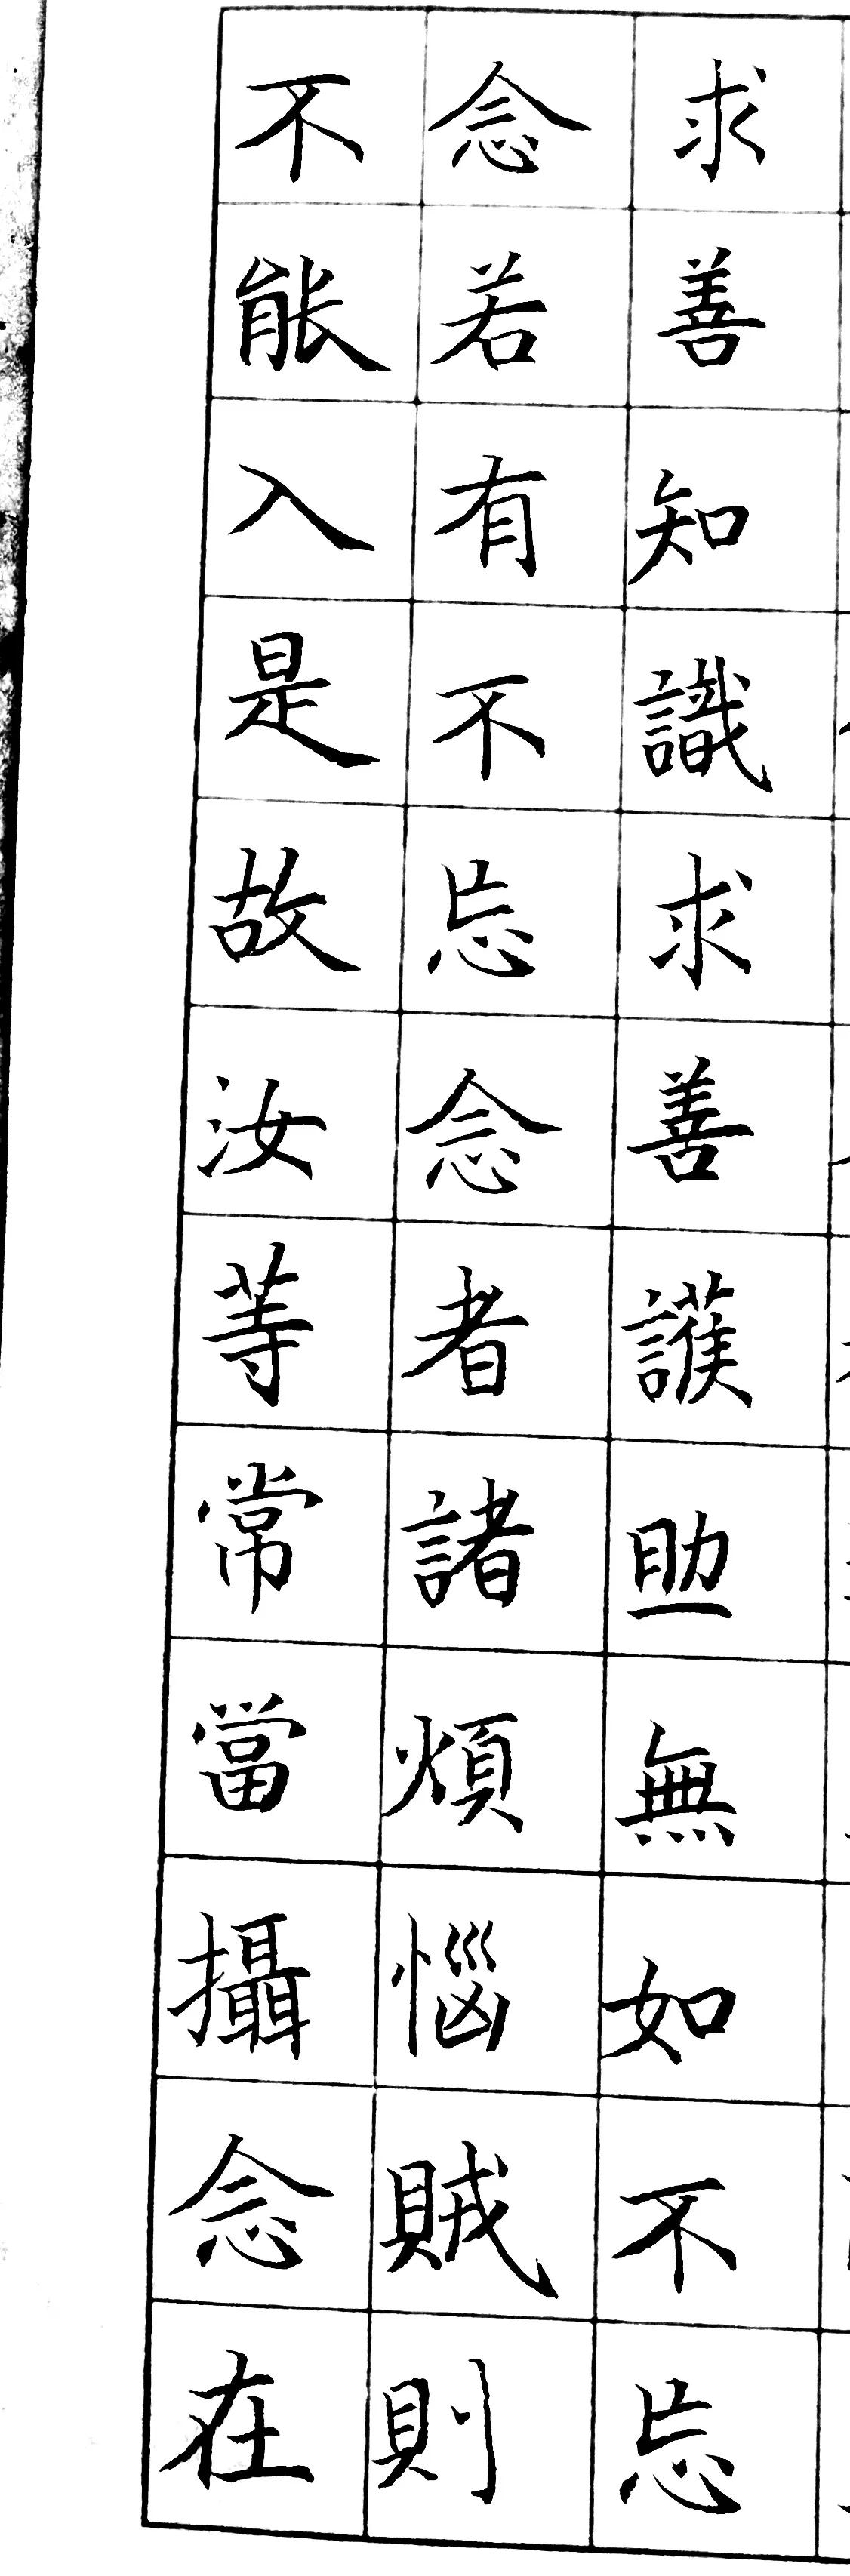 求善知識求善護助無如不忘
念若有不忘念者諸煩惱賊則
不能入是故汝等常當攝念在